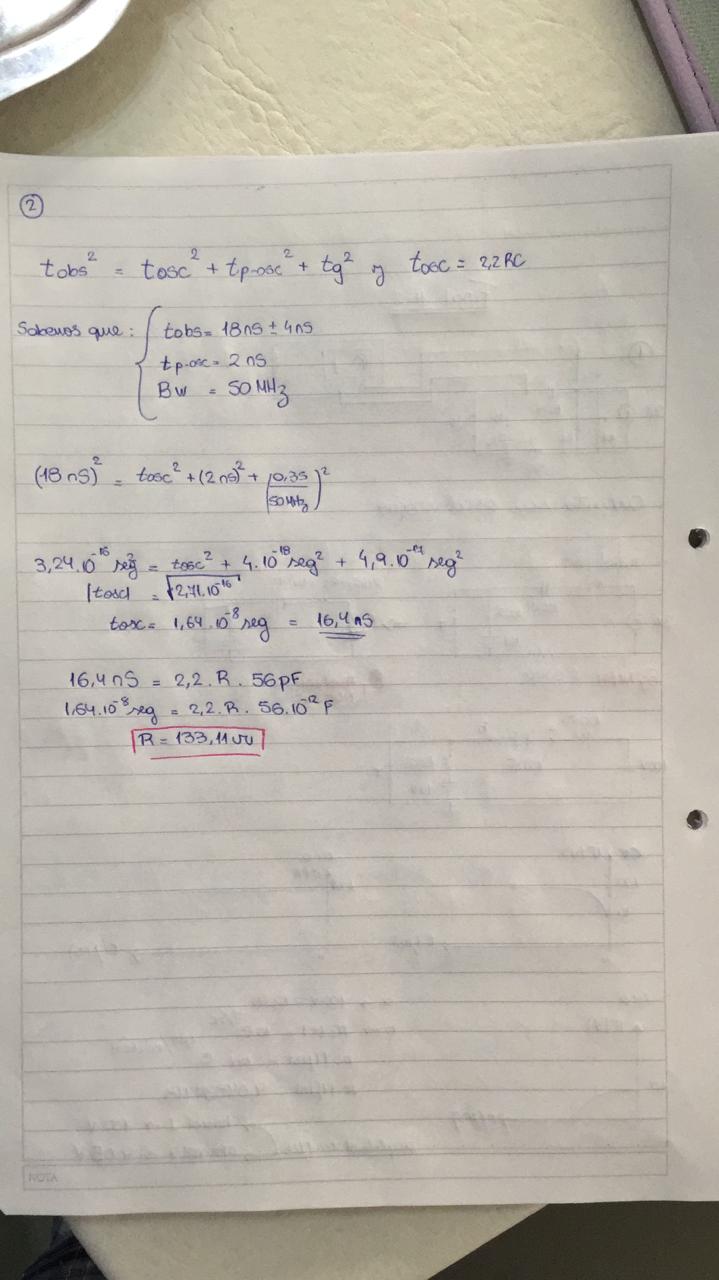 ②
tobs² = tosc² + tp-osc² + tg² y tosc = 2,2RC
Sabemos que: tobs = 18 nS ± 4 nS
tp-osc = 2 nS
BW = 50 MHz
(18 nS)² = tosc² + (2 nS)² + (0,35/50MHz)²
3,24.10⁻¹⁶ seg² = tosc² + 4.10⁻¹⁸ seg² + 4,9.10⁻¹⁷ seg²
|tosc| = √2,71.10⁻¹⁶
tosc = 1,64.10⁻⁸ seg = 16,4 nS
16,4 nS = 2,2. R. 56pF
1,64.10⁻⁸ seg = 2,2. R. 56.10⁻¹² F
R = 133,11 Ω
NOTA